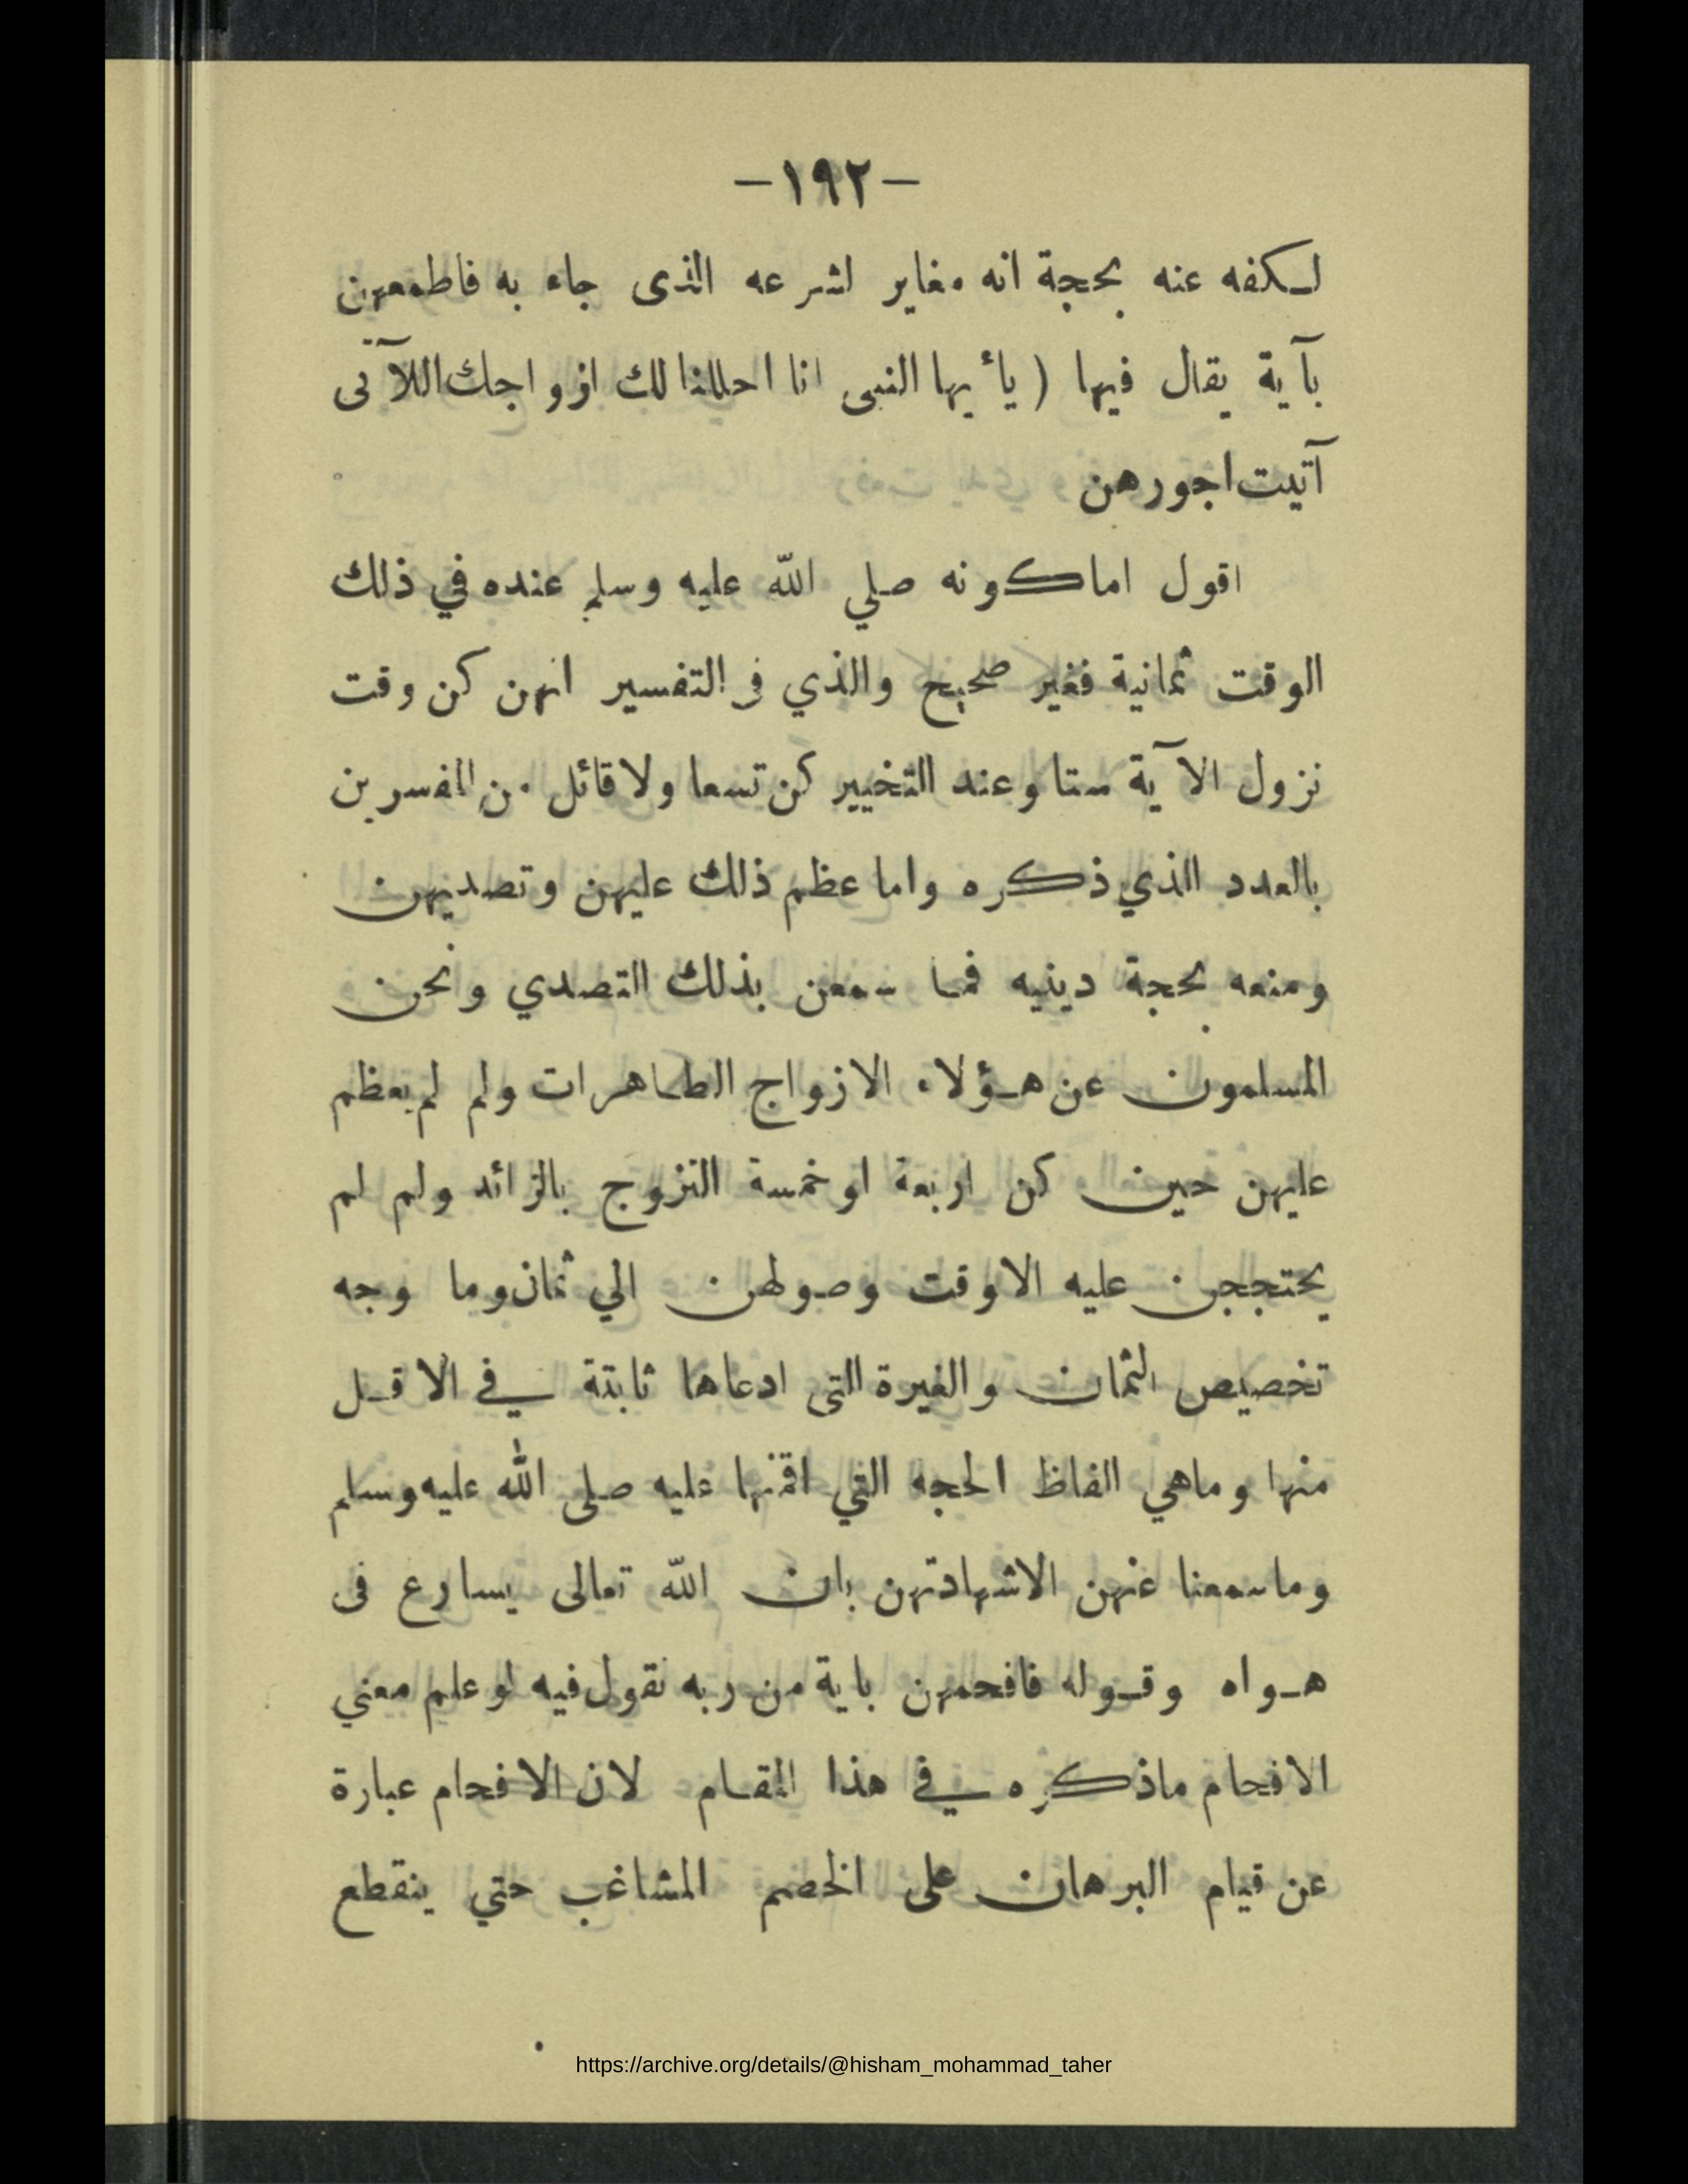 -١٩٢-
لكفه عنه بحجة انه مغاير لشرعه الذى جاء به فاطمعهن
بآية يقال فيها ( يأيها النبى انا احللنا لك ازواجك اللآتى
آتيت اجورهن
اقول اما كونه صلي الله عليه وسلم عنده في ذلك
الوقت ثمانية فغير صحيح والذي في التفسير انهن كن وقت
نزول الآية ستا وعند التخيير كن تسعا ولا قائل من المفسرين
بالعدد الذي ذكره واما عظم ذلك عليهن وتصديهن
ومنعه بحجة دينيه فما سمعن بذلك التصدي ونحن
المسلمون عن هؤلاء الازواج الطاهرات ولم لم يعظم
عليهن حين كن اربعة او خمسة التزوج بالزائد ولم لم
يحتججن عليه الا وقت وصولهن الي ثمان وما وجه
تخصيص الثمان والغيرة التى ادعاها ثابتة في الاقل
منها وماهي الفاظ الحجه التي اقمنها عليه صلى الله عليه وسلم
وما سمعنا عنهن الا شهادتهن بان الله تعالى يسارع فى
هواه وقوله فافحمهن باية من ربه نقول فيه لو علم معني
الافحام ماذكره في هذا المقام لان الافحام عبارة
عن قيام البرهان على الخصم المشاغب حتي ينقطع
https://archive.org/details/@hisham_mohammad_taher